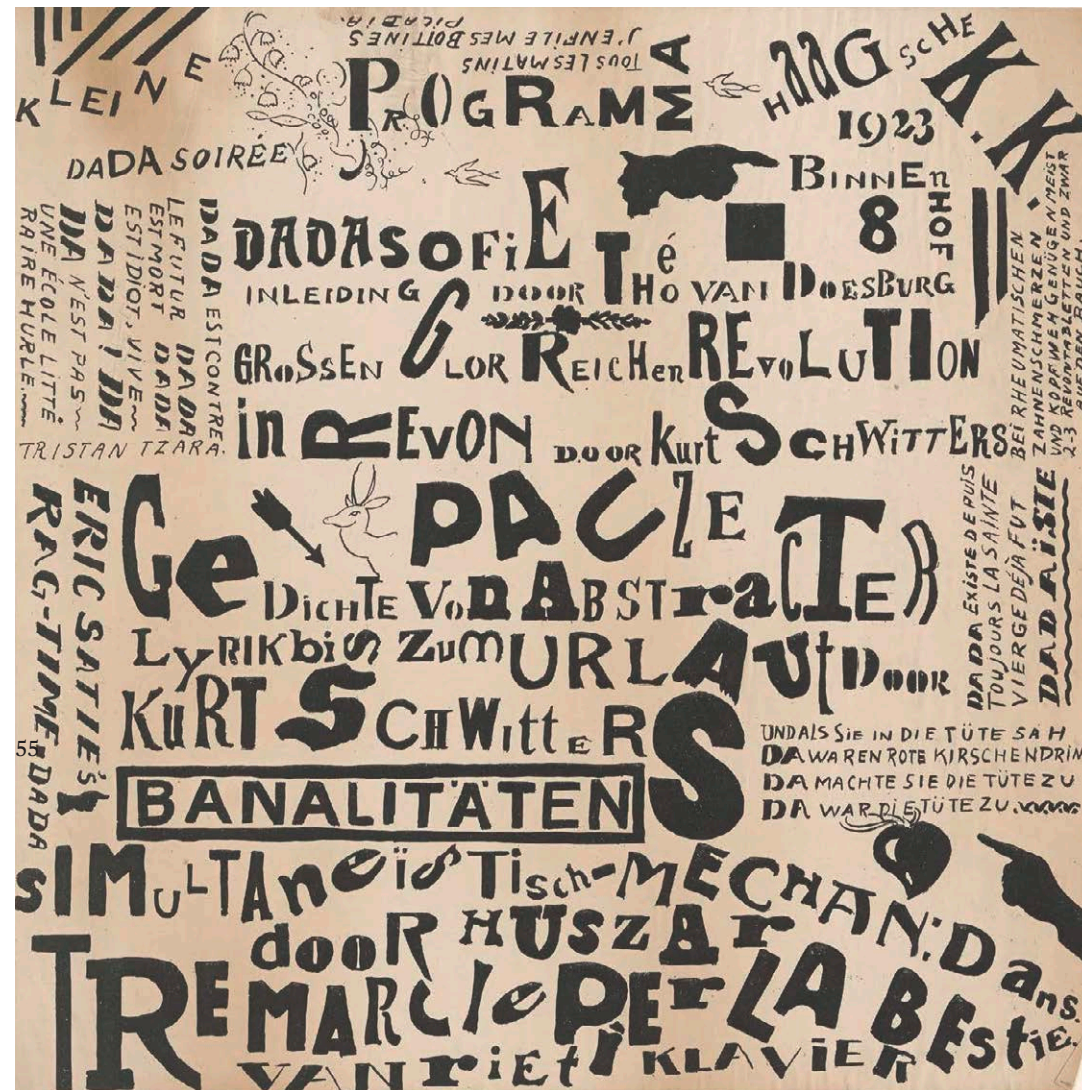 KLEINE
DADA SOIRÉE
TOUS LES MATINS
J'ENFILE MES BOITINES
PICADIA.
PROGRAMMA
HAAGSCHE K.K.
1923
BINNENHOF
8
DADASOFIE
INLEIDING DOOR THÉO VAN DOESBURG
GROSSEN GLORREICHEN REVOLUTION
in REVON DOOR Kurt SCHWITTERS
DADA EST CONTRE
LE FUTUR DADA
EST MORT DADA
EST IDIOT, VIVE
DADA! DADA
DA N'EST PAS
UNE ÉCOLE LITTÉ
RAIRE HURLE
TRISTAN TZARA.
BEI RHEUMATISCHEN
ZAHNENSCHMERZEN
UND KOPFWEH GENÜGEN MEIST
2-3 REVONTABLETTEN UND ZWAR
PAUZE
GeDICHTE VON ABSTracTER
LyRIK biS ZUm URLAUt DOOR
KURT SCHWittERS
DADA EXISTE DEPUIS
TOUJOURS LA SAINTE
VIERGE DÉJÀ FUT
DADAÏSTE
ERIC SATIE'S
RAG-TIME-DADA
55
UND ALS SIE IN DIE TÜTE SAH
DA WAREN ROTE KIRSCHEN DRIN
DA MACHTE SIE DIE TÜTE ZU
DA WAR DIE TÜTE ZU.
BANALITÄTEN
SIMULTANeïsTisch-MECHAN: Dans.
dooR HUSZAr
TRE MARCIe PEr LA BEstie.
VAN riEti KLAVIER